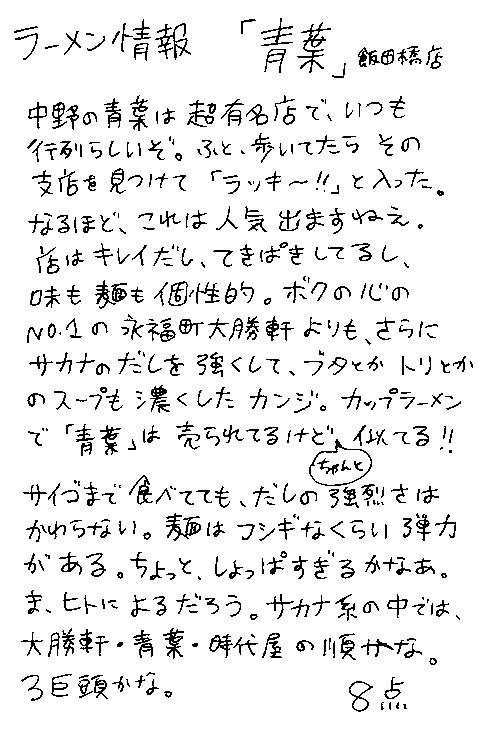 ラーメン情報 「青葉」飯田橋店
中野の青葉は超有名店で、いつも
行列らしいぞ。ふと、歩いてたら その
支店を見つけて「ラッキ～!!」と入った。
なるほど、これは人気出ますねえ。
店はキレイだし、てきぱきしてるし、
味も麺も個性的。ボクの心の
NO.1の永福町大勝軒よりも、さらに
サカナのだしを強くして、ブタとかトリとか
のスープも濃くしたカンジ。カップラーメン
で「青葉」は売られてるけど、ちゃんと似てる!!
サイゴまで食べてても、だしの強烈さは
かわらない。麺はフシギなくらい弾力
がある。ちょっと、しょっぱすぎるかなあ。
ま、ヒトによるだろう。サカナ系の中では、
大勝軒・青葉・時代屋の順かな。
3巨頭かな。 8点